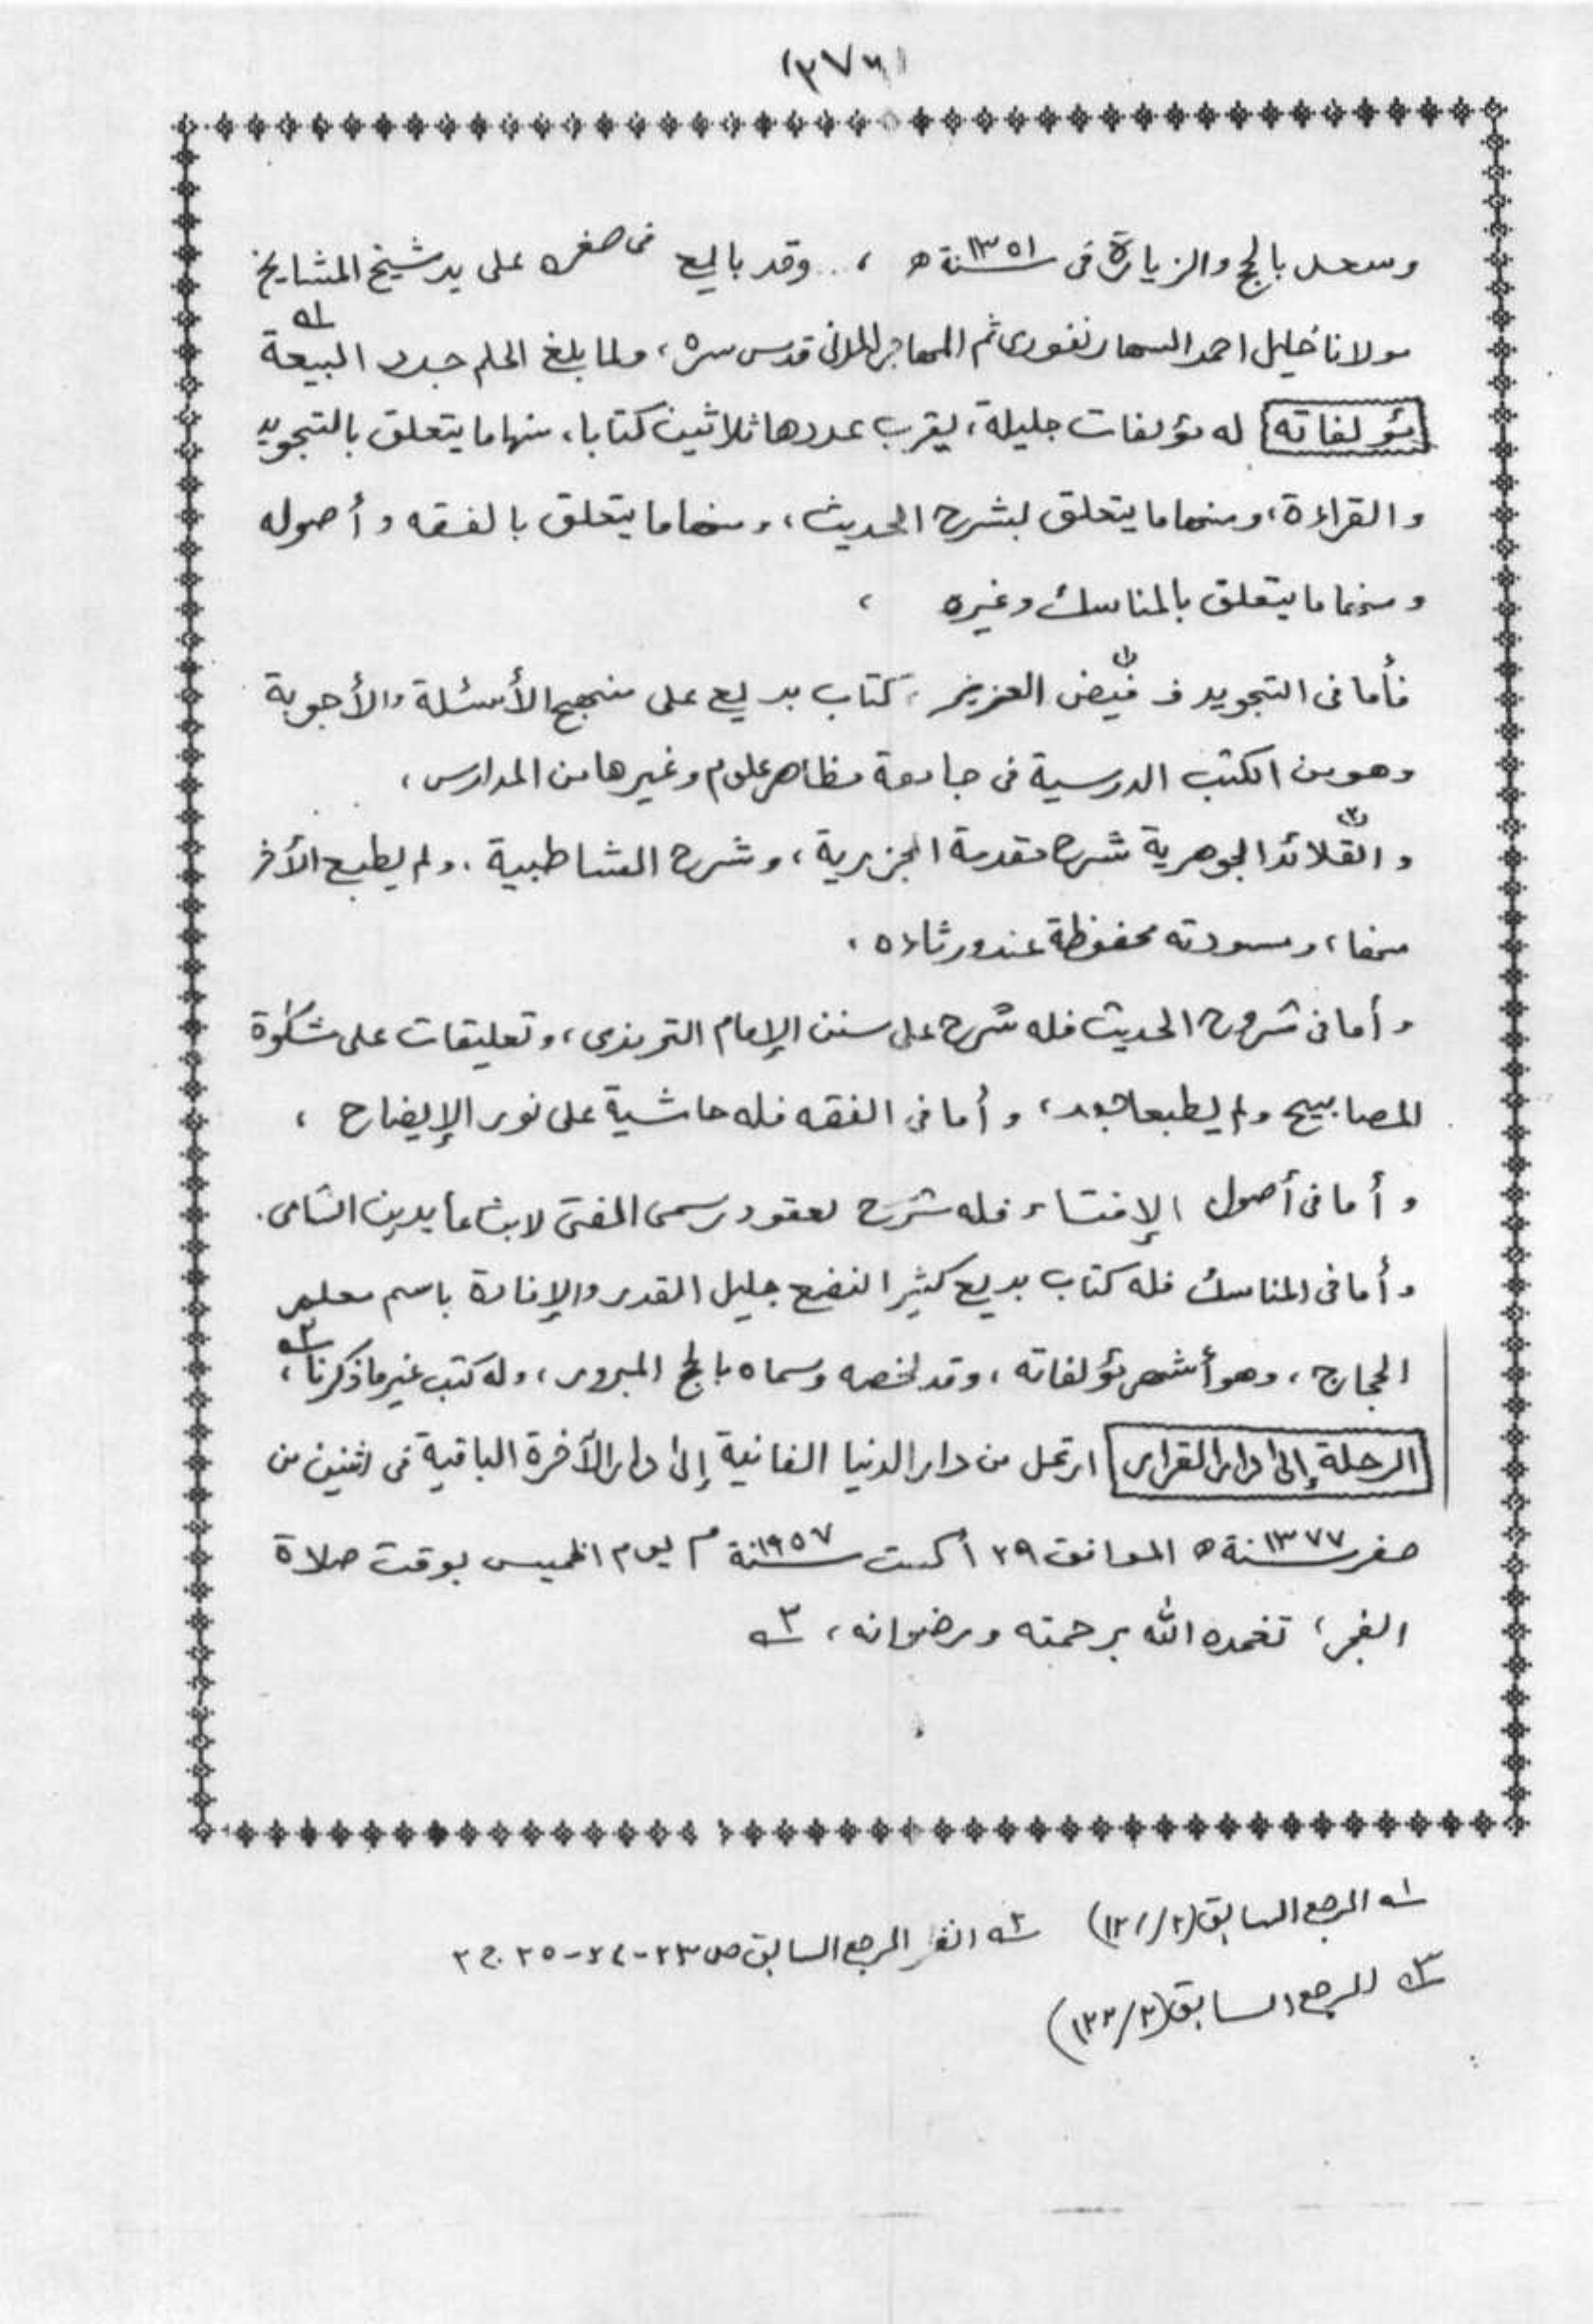 (٣٧٦)
وسعد بالحج والزيارة فى سنة ١٣٥١ ه ، وقد بايع فى صغره على يد شيخ المشايخ
مولانا خليل احمد السهارنفورى ثم المهاجر المدنى قدس سره، ولما بلغ الحلم جدد البيعة ١ه
مؤلفاته له مؤلفات جليلة، يقرب عددها ثلاثين كتابا، منها ما يتعلق بالتجويد
والقراءة، ومنها ما يتعلق بشرح الحديث، ومنها ما يتعلق بالفقه وأصوله
ومنها ما يتعلق بالمناسك وغيره ،
فأما فى التجويد ف (١) فيض العزيز، كتاب بديع على منهج الأسئلة والأجوبة
وهو من الكتب الدرسية فى جامعة مظاهر علوم وغيرها من المدارس،
و (٢) القلائد الجوهرية شرح مقدمة الجزرية، وشرح الشاطبية، ولم يطبع الأخر
منها، ومسودته محفوظة عند ورثاءه،
وأما فى شروح الحديث فله شرح على سنن الإمام الترمذى، وتعليقات على مشكوة
المصابيح ولم يطبعا بعد، وأما فى الفقه فله حاشية على نور الإيضاح ،
وأما فى أصول الإفتاء فله شرح لعقود رسم المفتى لابن عابدين الشامى.
وأما فى المناسك فله كتاب بديع كثير النفع جليل القدر والإفادة باسم معلم
الحجاج، وهو أشهر مؤلفاته، وقد لخصه وسماه بالحج المبرور، وله كتب غير ما ذكرنا، ٢ه
الرحلة إلى دار القرار ارتحل من دار الدنيا الفانية إلى دار الآخرة الباقية فى اثنين من
صفر سنة ١٣٧٧ ه الموافق ٢٩ أكست سنة ١٩٥٧ م يوم الخميس بوقت صلاة
الفجر، تغمده الله برحمته ورضوانه، ٣ه
١ه المرجع السابق (١٢١/٢) ٢ه انظر المرجع السابق ص ٢٣-٢٤-٢٥ ج ٢
٣ه المرجع السابق (١٢٢/٢)